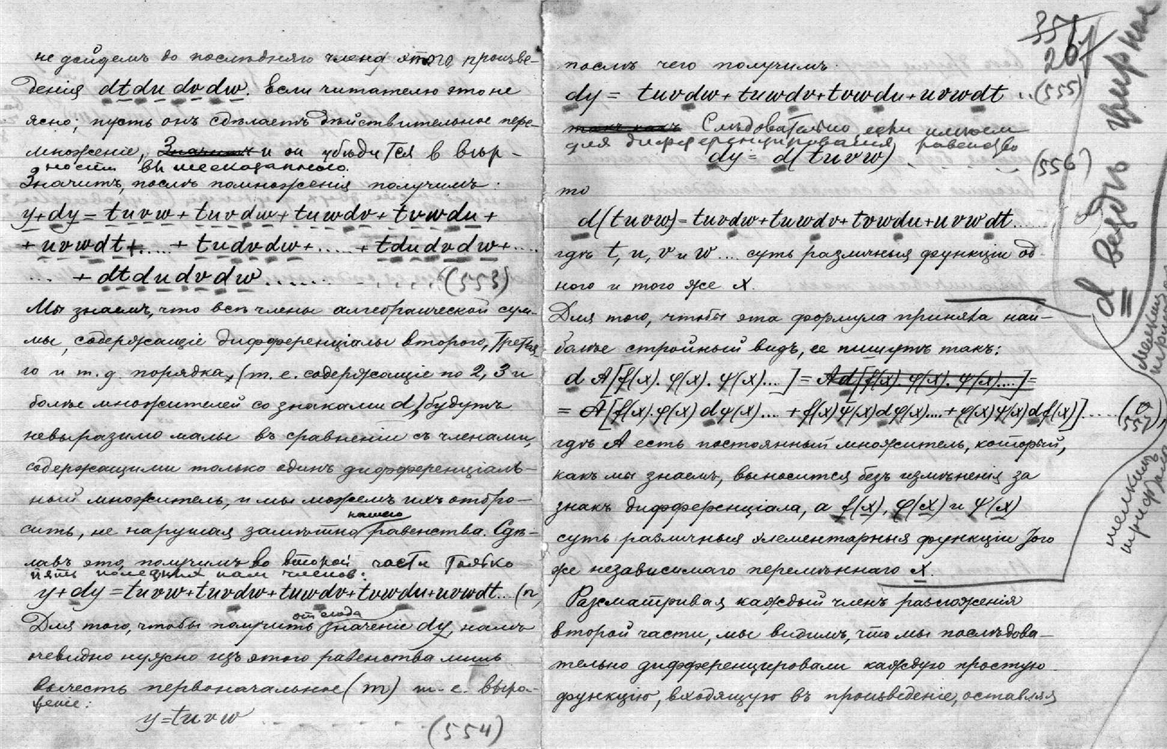 не дойдемъ до послѣдняго члена этого произве-
денія dtdu dvdw. Если читателю это не
ясно, пусть онъ сдѣлаетъ дѣйствительное пере-
множеніе, и он убѣдится в вѣр-
ности вышесказаннаго.
Значитъ, послѣ помноженія получимъ:
y+dy = tuvw + tuvdw + tuwdv + tvwdu +
+ uvwdt + .... + tudvdw + ..... + tdudvdw + ....
... + dtdudvdw ....... (553)
Мы знаемъ, что всѣ члены алгебраической сум-
мы, содержащіе дифференціалы второго, третья-
го и т.д. порядка, (т.е. содержащіе по 2, 3 и
болѣе множителей со знаками d) будутъ
невыразимо малы въ сравненіи съ членами,
содержащими только одинъ дифференціаль-
ный множитель, и мы можемъ ихъ отбро-
сить, не нарушая замѣтно нашего равенства. Сдѣ-
лавъ это, получимъ во второй части только
пять полезныхъ намъ членовъ:
y+dy = tuvw+tuvdw+tuwdv+tvwdu+uvwdt... (n)
Для того, чтобы получить отсюда значеніе dy, намъ
очевидно нужно изъ этого равенства лишь
вычесть первоначальное (m) т.е. выра-
женіе:
y=tuvw (554)
351
267
послѣ чего получимъ:
dy = tuvdw+tuwdv+tvwdu+uvwdt .. (555)
Слѣдовательно если имѣем
для дифференцирования равенство
dy = d(tuvw) (556)
то
d(tuvw)=tuvdw+tuwdv+tvwdu+uvwdt......
гдѣ t, u, v и w ... суть различныя функціи од-
ного и того же x.
Для того, чтобы эта формула приняла наи-
болѣе стройный видъ, ее пишутъ такъ:
d A[f(x). φ(x). ψ(x)....] = Ad[f(x). φ(x). ψ(x)....]=
= A[f(x).φ(x)dψ(x).... + f(x)ψ(x)dφ(x).... + φ(x)ψ(x)df(x)]..... (557)
гдѣ A есть постоянный множитель, который,
какъ мы знаемъ, выносится безъ измѣненія за
знакъ дифференціала, а f(x), φ(x) и ψ(x)
суть различныя элементарныя функціи того
же независимаго перемѣннаго x.
Разсматривая каждый членъ разложенія
второй части, мы видимъ, что мы послѣдова-
тельно дифференцировали каждую простую
функцію, входящую въ произведеніе, оставляя
d вездѣ жирное
мелкимъ
шрифтомъ